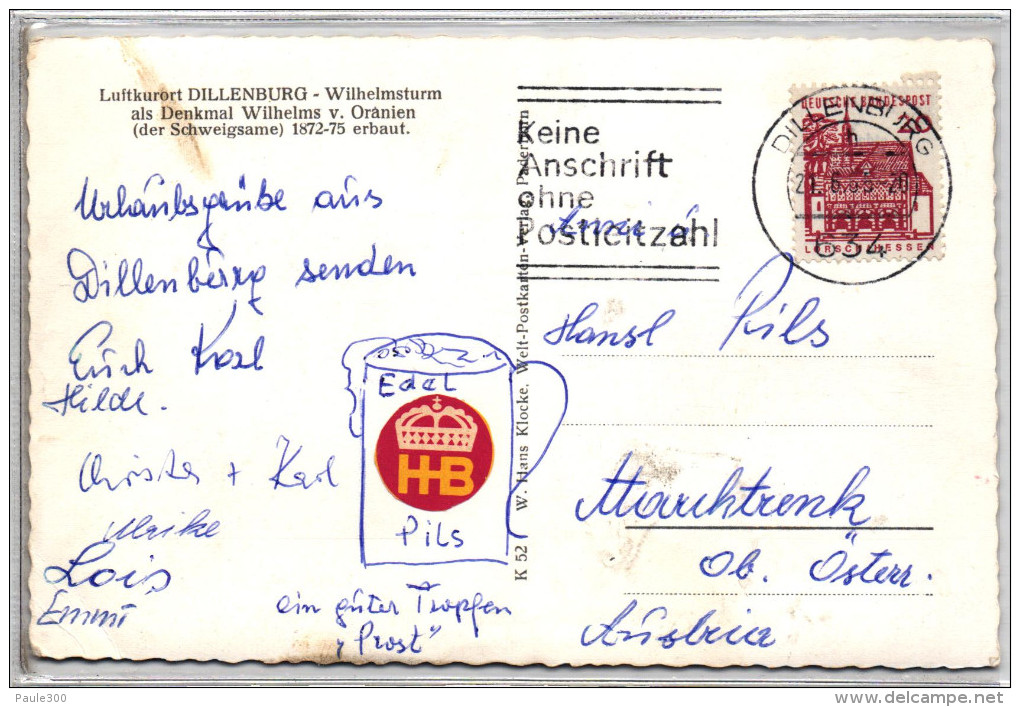 Luftkurort DILLENBURG - Wilhelmsturm
als Denkmal Wilhelms v. Oranien
(der Schweigsame) 1872-75 erbaut.
Urlaubsgrüße aus
Dillenburg senden
Euch Karl
Hilde.
Christa + Karl
Ulrike
Lois
Emmi
Edel
H+B
Pils
ein guter Tropfen
"Prost"
K 52 W. Hans Klocke, Welt-Postkarten-Verlag, Paderborn
Keine
Anschrift
ohne
Postleitzahl
DEUTSCHE BUNDESPOST
LORSCH/HESSEN
DILLENBURG
634
Anni u.
Hansl Pils
Marchtrenk
Ob. Österr.
Austria
Paule300
www.delcampe.net